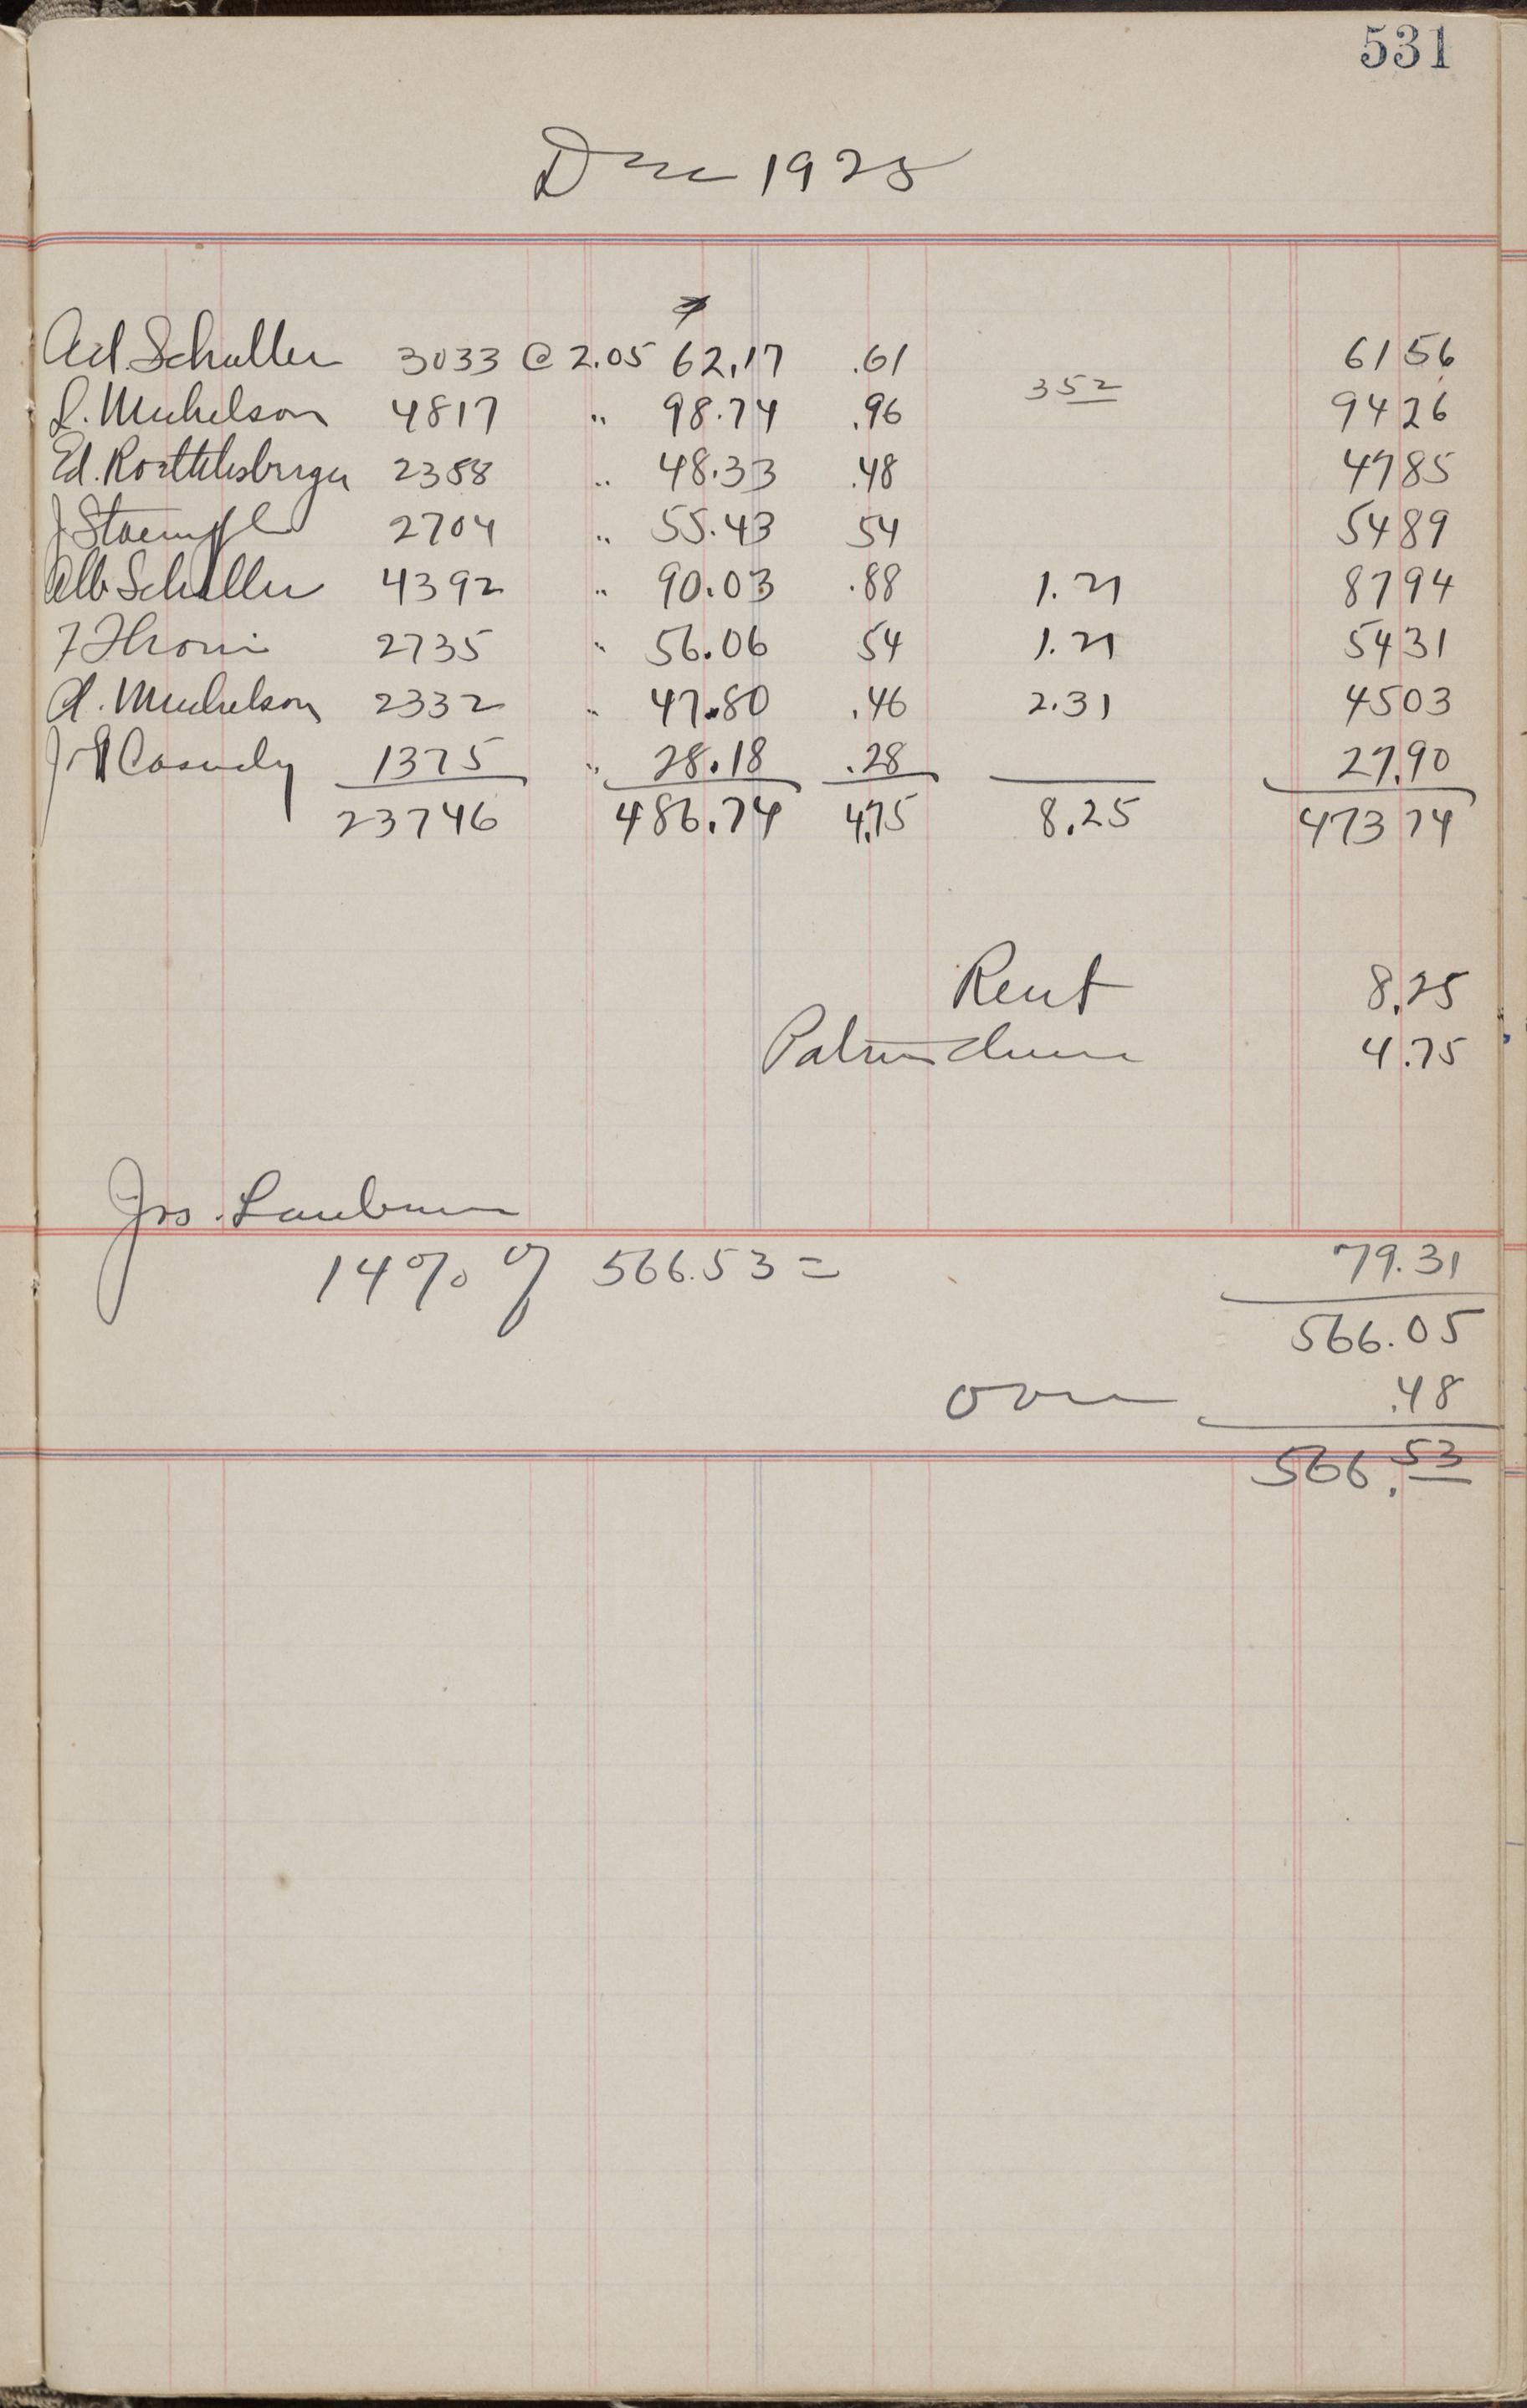 531
Dec 1928
Ad. Schaller 3033 @ 2.05 62.17 .61 6156
L. Michelson 4817 " 98.74 .96 3 52 9426
Ed. Roethlisberger 2358 " 48.33 .48 4785
J Staempfli 2704 " 55.43 54 5489
Alb Schaller 4392 " 90.03 .88 1.21 8794
2735 " 56.06 54 1.21 5431
A. Michelson 2332 " 47.80 .46 2.31 4503
Casudy 1375 " 28.18 .28 27.90
23746 486.74 4.75 8.25 473 74
Rent 8.25
4.75
Jos.
14% of 566.53 = 79.31
566.05
over .48
566.53